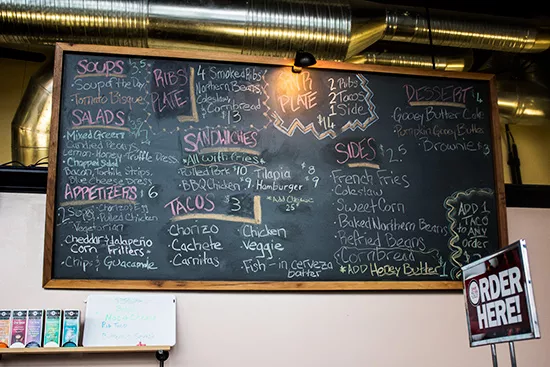 SOUPS
Soup of the Day
Tomato Bisque
SALADS $5
Mixed Greens
Candied Pecans
Lemon-Honey Truffle Dress
Chopped Salad
Bacon, Tortilla Strips
Blue Cheese
APPETIZERS $6
Chorizo
Pulled Chicken
Vegetarian
Cheddar Jalapeño
Corn Fritters
Chips & Guacamole
RIBS PLATE
4 Smoked Ribs
Northern Beans
Coleslaw
Cornbread
$13
SANDWICHES
All with Fries
Pulled Pork $10
BBQ Chicken $9
Tilapia $8
Hamburger $9
*Add Chicken
TACOS $3
Chorizo
Cachete
Carnitas
Chicken
Veggie
Fish - in cerveza batter
PLATE
2 Ribs
2 Tacos
1 Side
$14
SIDES $2.5
French Fries
Coleslaw
Sweet Corn
Baked Northern Beans
Refried Beans
Cornbread
*ADD Honey Butter $1
DESSERT $4
Gooey Butter Cake
Pumpkin Gooey Butter
Brownie $3
ADD 1
TACO
to ANY
order
ORDER
HERE!